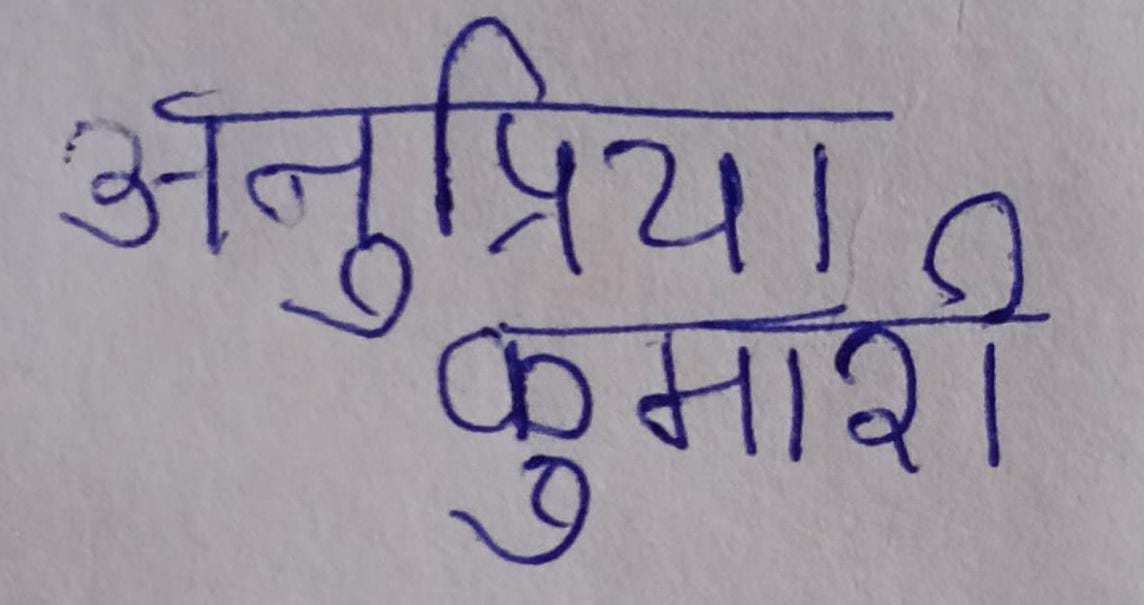 अनुप्रिया
कुमारी